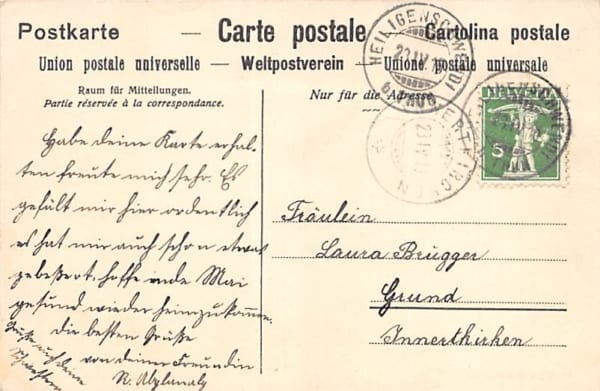 Postkarte — Carte postale — Cartolina postale
Union postale universelle — Weltpostverein — Unione postale universale
Raum für Mitteilungen.
Partie réservée à la correspondance.
Nur für die Adresse
HEILIGENSCHWENDI
23.IV.
HEILIGENSCHWENDI
INNERTKIRCHEN
23.IV.
5
Habe deine Karte erhal-
ten freute mich sehr. Es
gefällt mir hier ordentlich
es hat mir auch schon etwas
gebeßert, hoffe ende Mai
gesund wieder heimzukommen.
Die besten Grüße
von deiner Freundin
Grüße auch deine
Schwestern
Fräulein
Laura Brügger
Grund
Innertkirchen